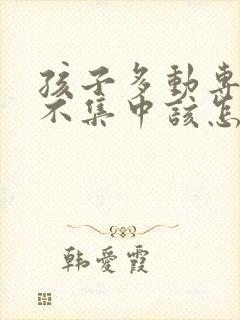 孩子多動專
不集中該怎
韩愛霞